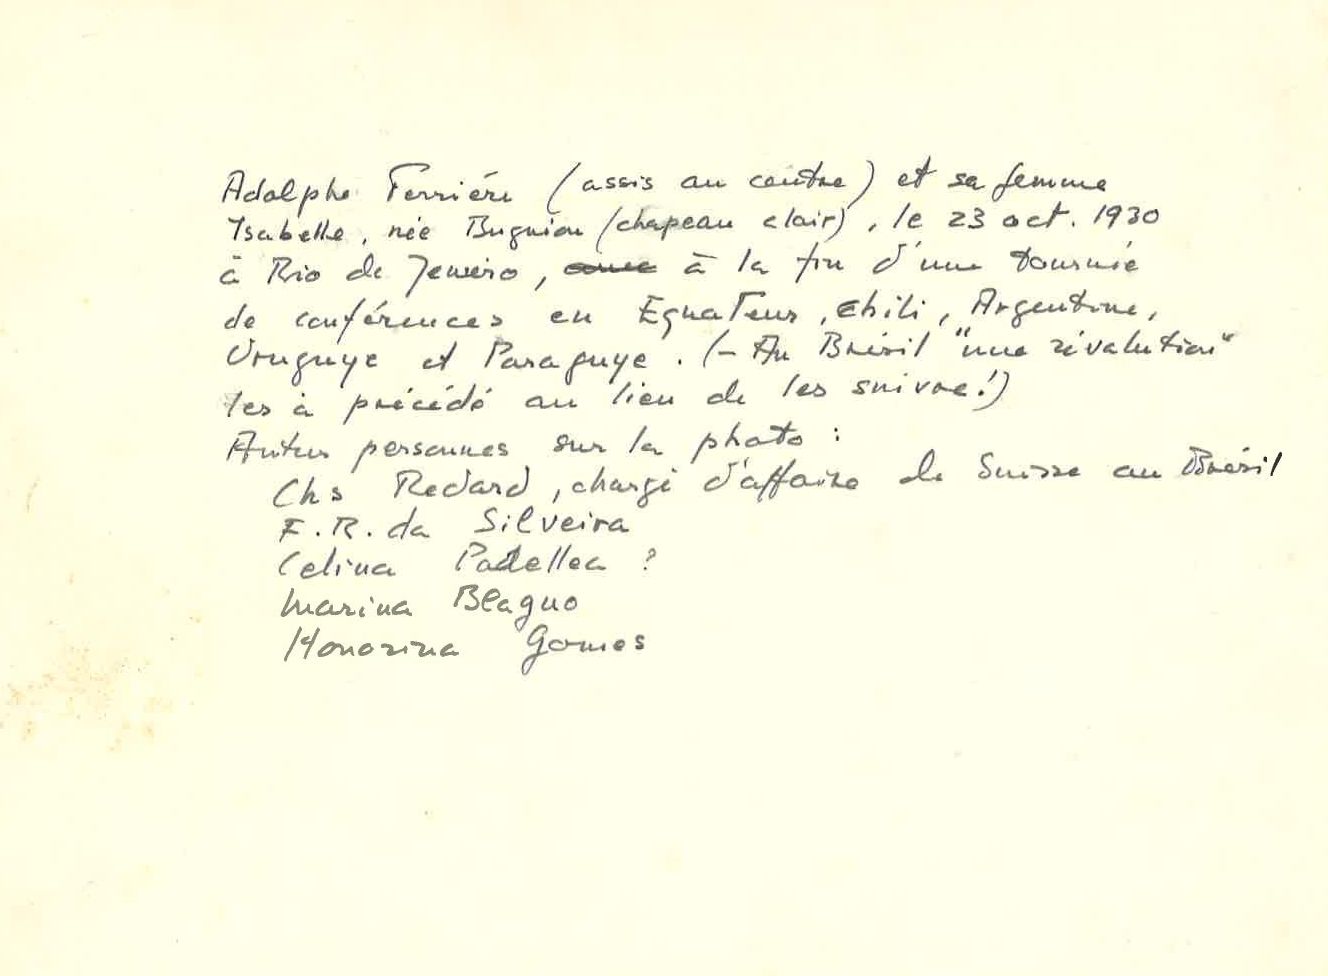 Adolphe Ferrière (assis au centre) et sa femme
Isabelle, née Bugnion (chapeau clair), le 23 oct. 1930
à Rio de Janeiro, à la fin d'une tournée
de conférences en Equateur, Chili, Argentine,
Uruguye et Paraguye. (– Au Brésil "une révolution"
les à précédé au lieu de les suivre!)
Autres personnes sur la photo :
Chs Redard, chargé d'affaire de Suisse au Brésil
F. R. da Silveira
Celina Padellea ?
Marina Blaguo
Honorina Gomes